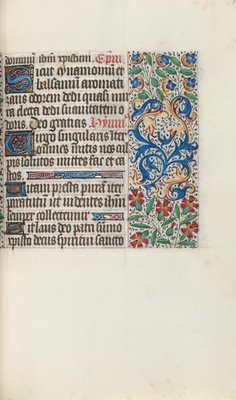 dominum ihm xpistum. Epm
Sicut cynamomum et
balsamum aromati
zans odorem dedi quasi mirra
electa dedi suavitatem o
doris. Deo gratias Hymn
Virgo singularis inter
omnes mitis nos cul
pis solutos mites fac et ca
stos.
Vitam presta puram iter
para tutum ut videntes ihm
semper colletemur
Sit laus deo patri summo
xpisto decus spiritui sancto